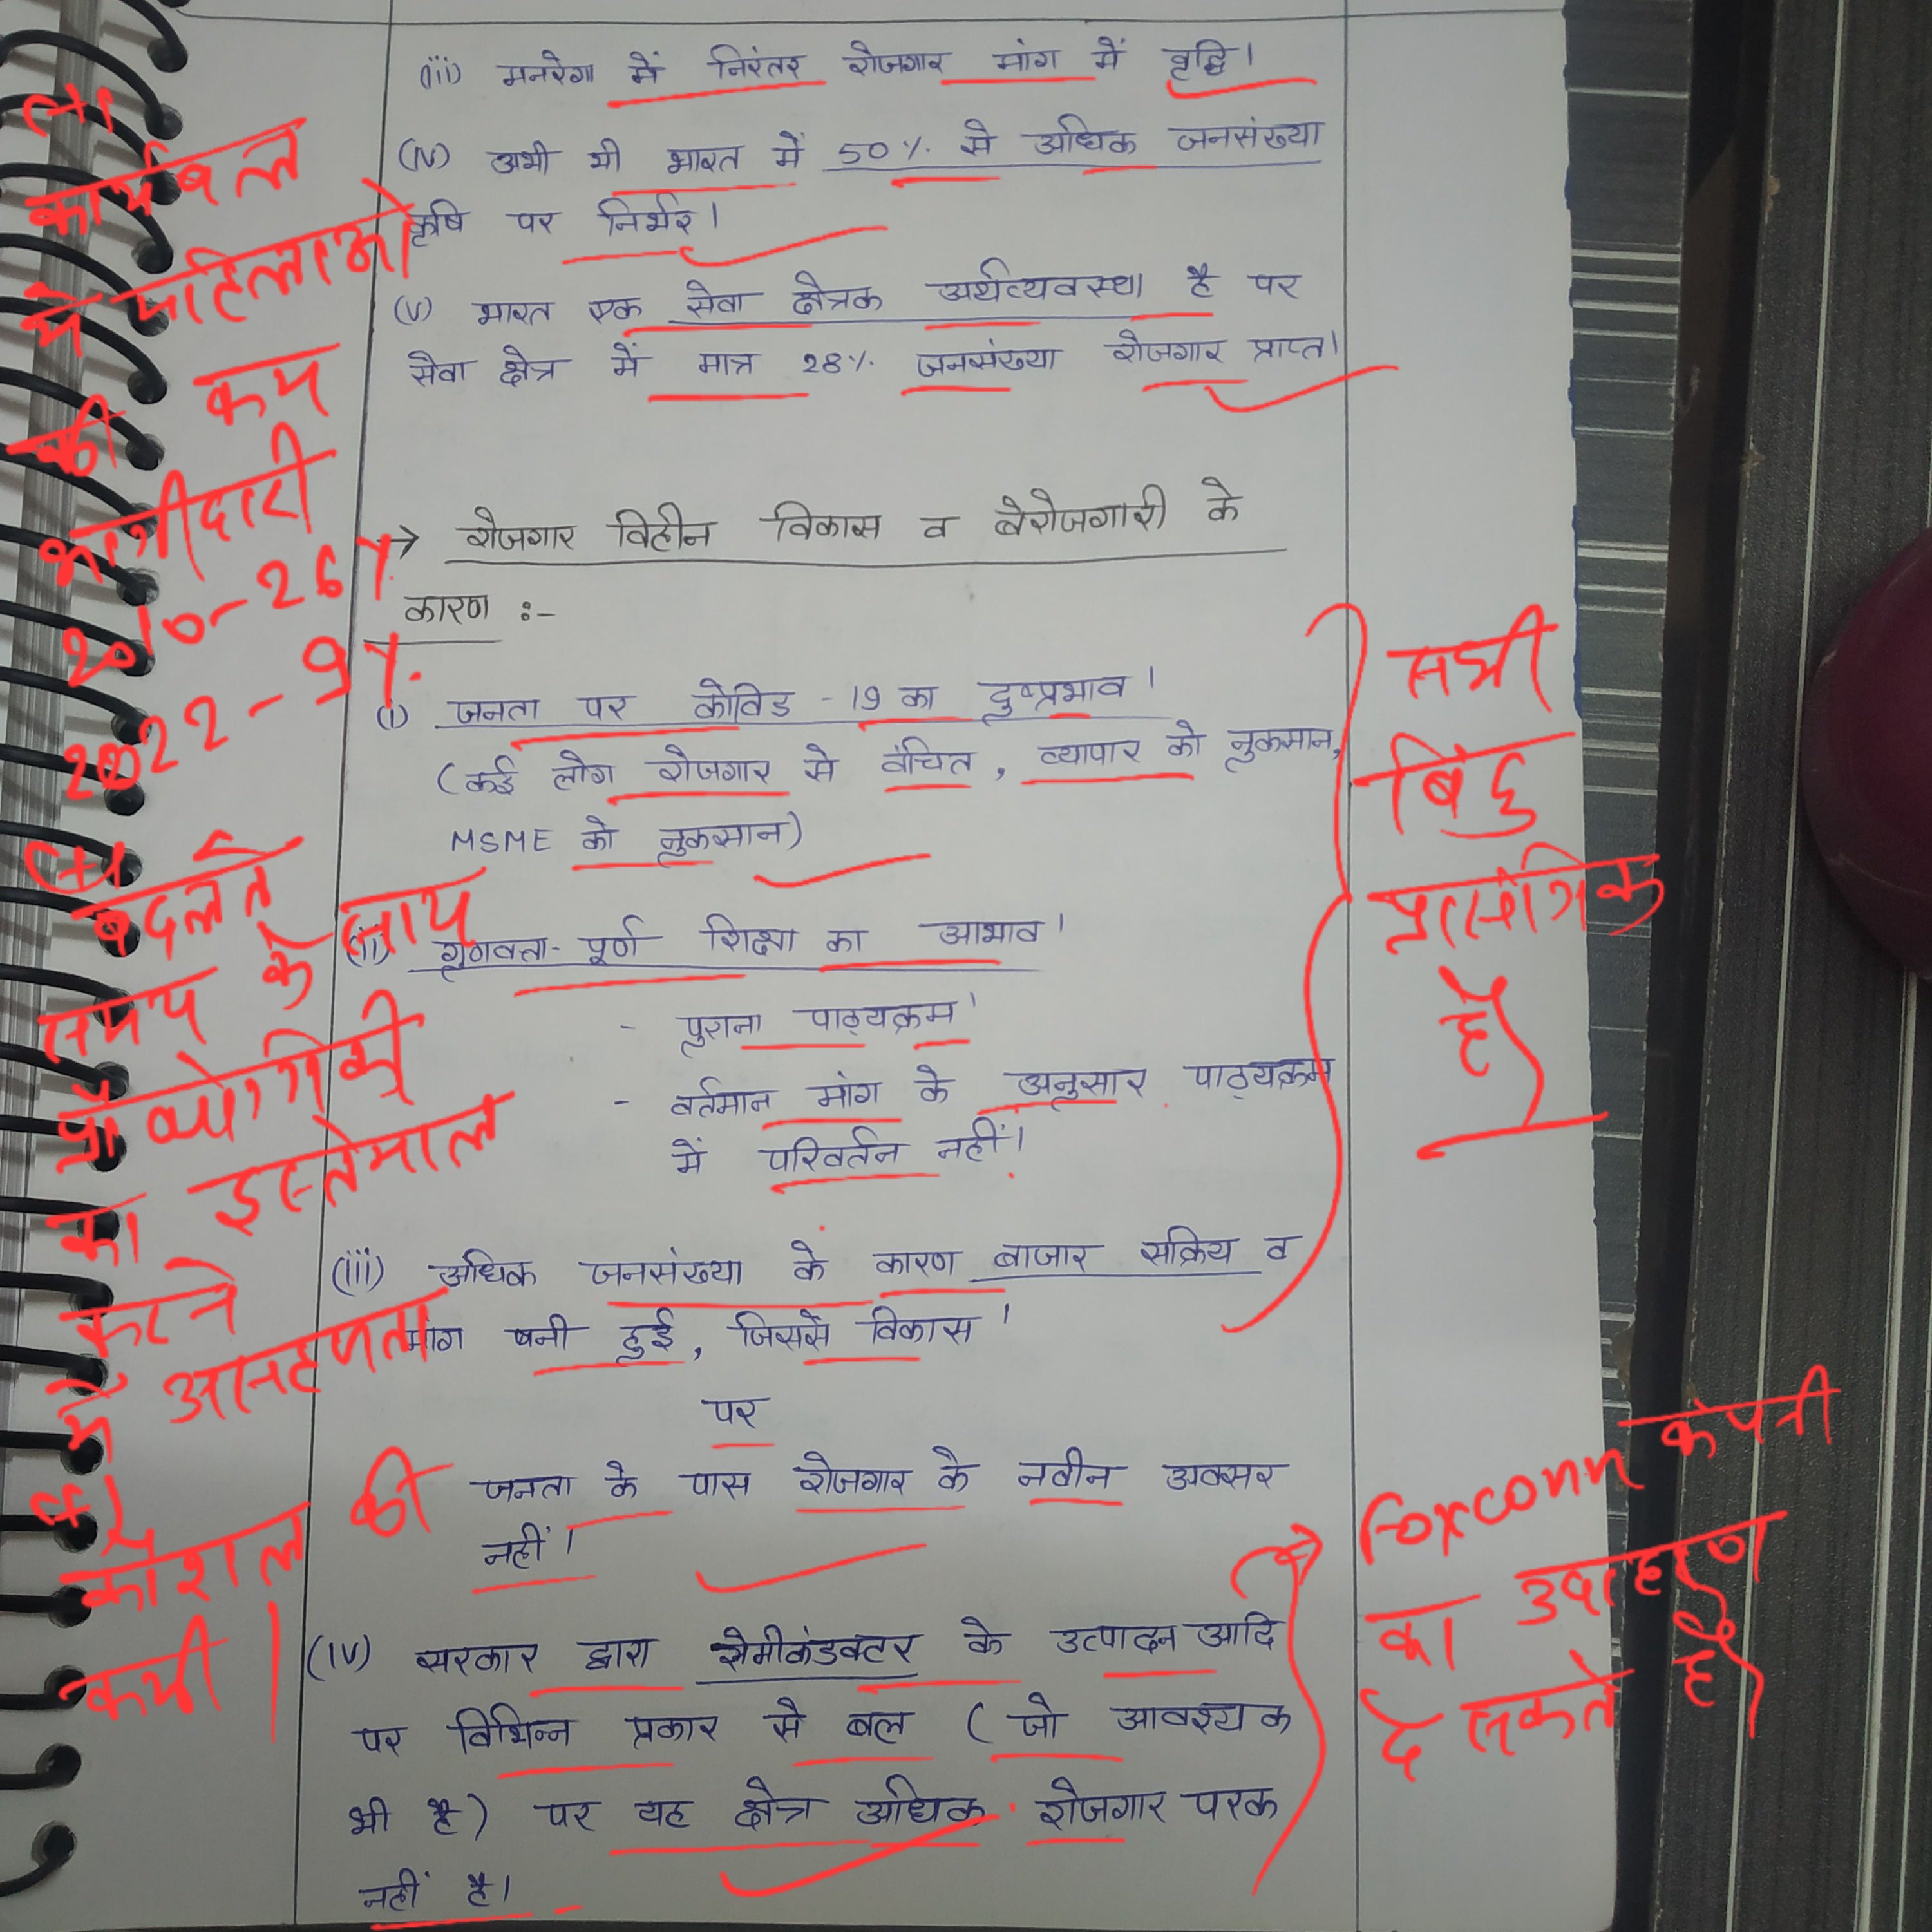 (iii) मनरेगा में निरंतर रोजगार मांग में वृद्धि।
(iv) अभी भी भारत में 50% से अधिक जनसंख्या
कृषि पर निर्भर।
(v) भारत एक सेवा क्षेत्रक अर्थव्यवस्था है पर
सेवा क्षेत्र में मात्र 28% जनसंख्या रोजगार प्राप्त।
→ रोजगार विहीन विकास व बेरोजगारी के
कारण :-
(i) जनता पर कोविड -19 का दुष्प्रभाव।
(कई लोग रोजगार से वंचित, व्यापार को नुकसान,
MSME को नुकसान)
(ii) गुणवत्ता-पूर्ण शिक्षा का आभाव।
- पुराना पाठ्यक्रम।
- वर्तमान मांग के अनुसार पाठ्यक्रम
में परिवर्तन नहीं।
(iii) अधिक जनसंख्या के कारण बाजार सक्रिय व
मांग बनी हुई, जिससे विकास।
पर
जनता के पास रोजगार के नवीन अवसर
नहीं।
(iv) सरकार द्वारा सेमीकंडक्टर के उत्पादन आदि
पर विभिन्न प्रकार से बल (जो आवश्यक
भी है) पर यह क्षेत्र अधिक रोजगार परक
नहीं है।
कार्यबल
में महिलाओं
की कम
भागीदारी
2010-26%
2022-9%
बदलते
समय के साथ
प्रौद्योगिकी
का इस्तेमाल
करने
में असहजता
कौशल की
कमी।
सभी
बिंदु
प्रासंगिक
है
Foxconn कंपनी
का उदाहरण
दे सकते है